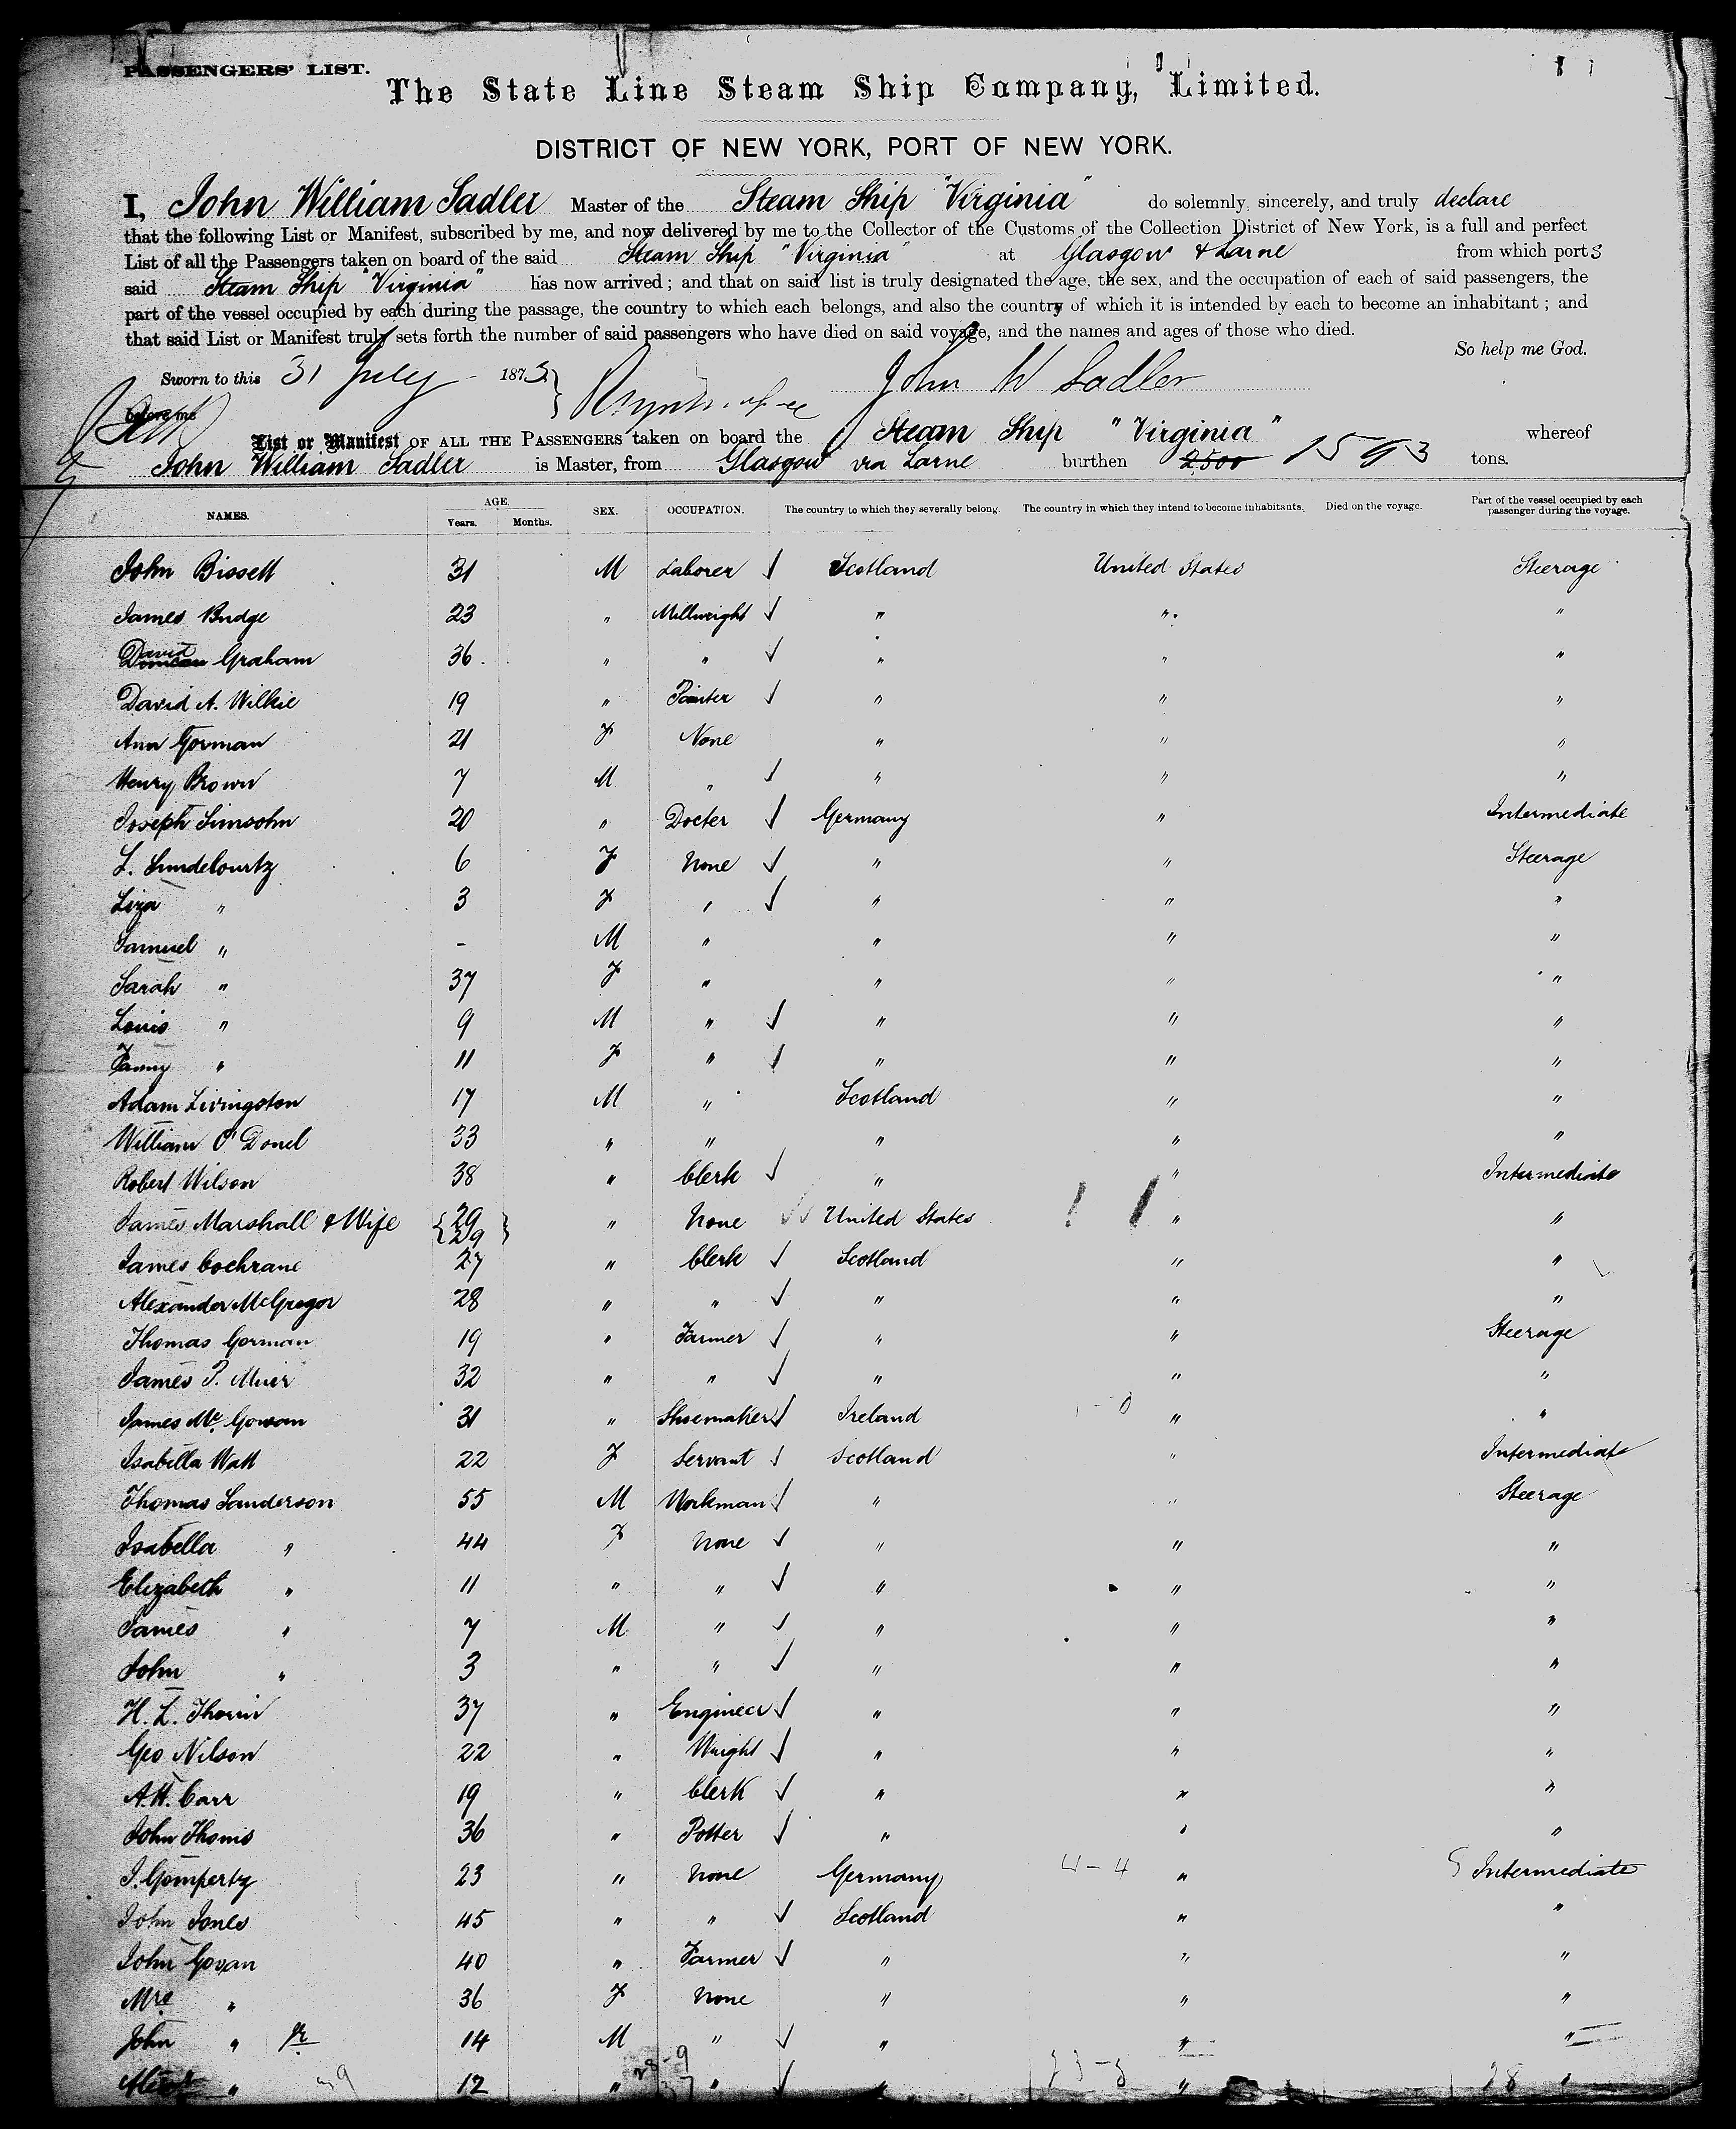 PASSENGERS' LIST.
The State Line Steam Ship Company, Limited.
DISTRICT OF NEW YORK, PORT OF NEW YORK.
I, John William Sadler Master of the Steam Ship "Virginia" do solemnly, sincerely, and truly declare
that the following List or Manifest, subscribed by me, and now delivered by me to the Collector of the Customs of the Collection District of New York, is a full and perfect
List of all the Passengers taken on board of the said Steam Ship "Virginia" at Glasgow & Larne from which ports
said Steam Ship "Virginia" has now arrived; and that on said list is truly designated the age, the sex, and the occupation of each of said passengers, the
part of the vessel occupied by each during the passage, the country to which each belongs, and also the country of which it is intended by each to become an inhabitant; and
that said List or Manifest truly sets forth the number of said passengers who have died on said voyage, and the names and ages of those who died.
So help me God.
Sworn to this 31 July 1873 John W Sadler
before me
List or Manifest OF ALL THE PASSENGERS taken on board the Steam Ship "Virginia" whereof
John William Sadler is Master, from Glasgow via Larne burthen 2,500 1593 tons.
NAMES. AGE. Years. Months. SEX. OCCUPATION. The country to which they severally belong. The country in which they intend to become inhabitants. Died on the voyage. Part of the vessel occupied by each passenger during the voyage.
John Bissett 31 M Laborer Scotland United States Steerage
James Budge 23 " Millwright " " "
David Duncan Graham 36 " " " " "
David A. Wilkie 19 " Painter " " "
Ann Gorman 21 F None " " "
Henry Brown 7 M " " " "
Joseph Simsohn 20 " Docter Germany " Intermediate
L. 6 F None " " Steerage
Liza " 3 F " " " "
Samuel " - M " " " "
Sarah " 37 F " " " "
Louis " 9 M " " " "
Fanny " 11 F " " " "
Adam Livingston 17 M " Scotland " "
William O'Donel 33 " " " " "
Robert Wilson 38 " Clerk " " Intermediate
James Marshall & Wife { 29 29 } " None United States " "
James Cochrane 27 " Clerk Scotland " "
Alexander McGregor 28 " " " " "
Thomas Gorman 19 " Farmer " " Steerage
James P. Muir 32 " " " " "
James Mc. Gowan 31 " Shoemaker Ireland " "
Isabella Watt 22 F Servant Scotland " Intermediate
Thomas Sanderson 55 M Workman " " Steerage
Isabella " 44 F None " " "
Elizabeth " 11 " " " " "
James " 7 M " " " "
John " 3 " " " " "
H. L. 37 " Engineer " " "
Geo Nilson 22 " Wright " " "
A.H. Carr 19 " Clerk " " "
John Thoms 36 " Potter " " "
J. Gompertz 23 " None Germany 4-4 " Intermediate
John Jones 45 " " Scotland " "
John Govan 40 " Farmer " " "
Mrs " 36 F None " " "
John " Jr 14 M " " " "
" 12 " " " " "